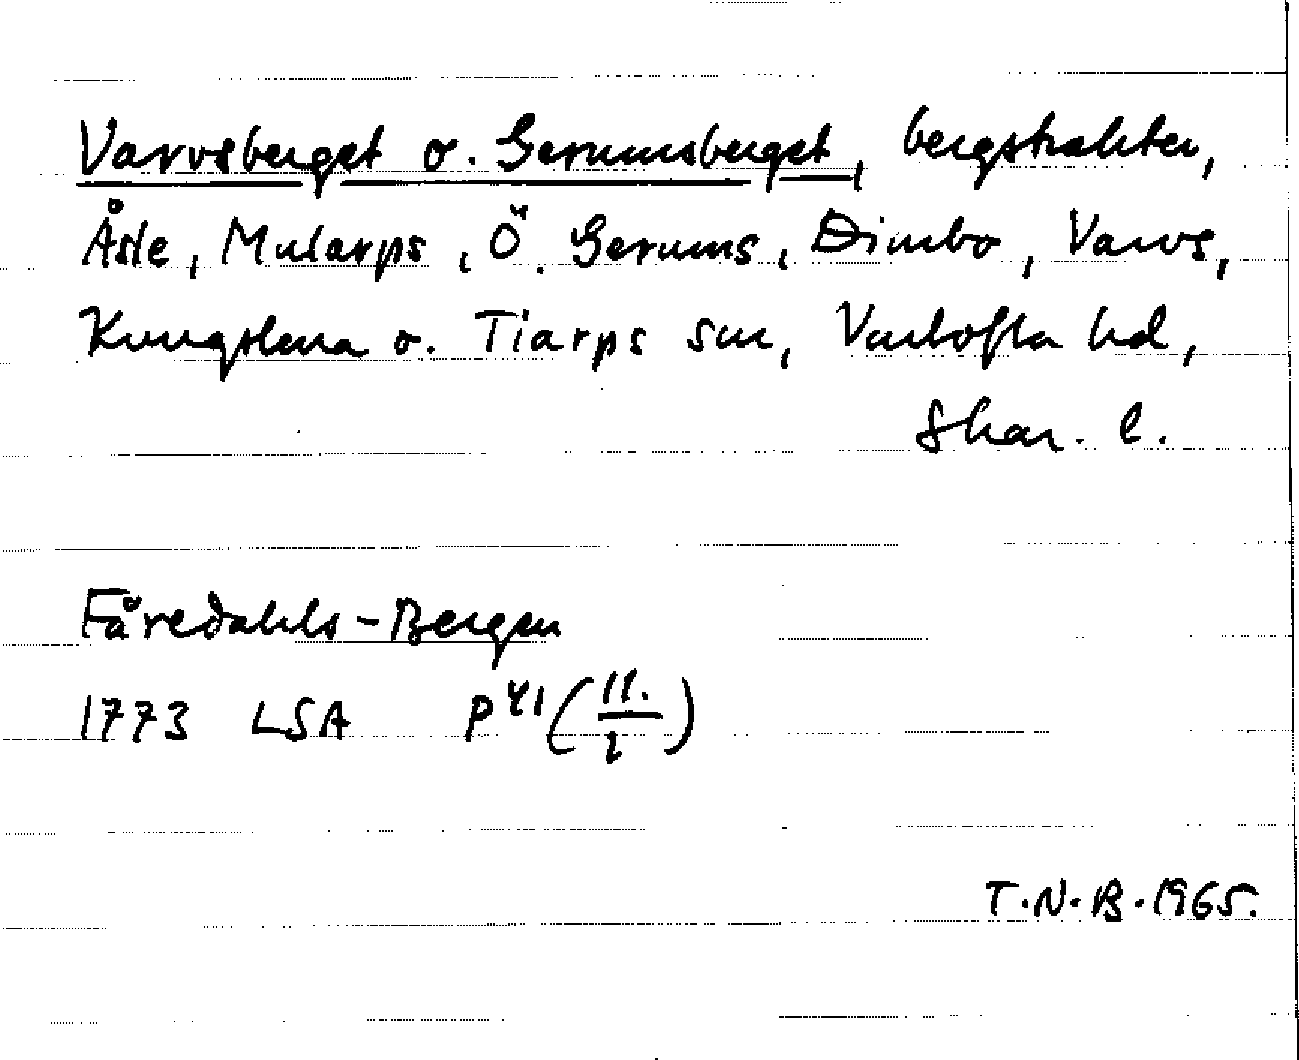 Varvsberget o. Gerumsberget, bergstrakter,
Åsle, Mularps, Ö. Gerums, Dimbo, Varvs,
Kungslena o. Tiarps snr, Vartofta hd,
Skar. l.
Fåredahls-Bergen
1773 LSA P 41 (11./2)
T.N.B. 1965.